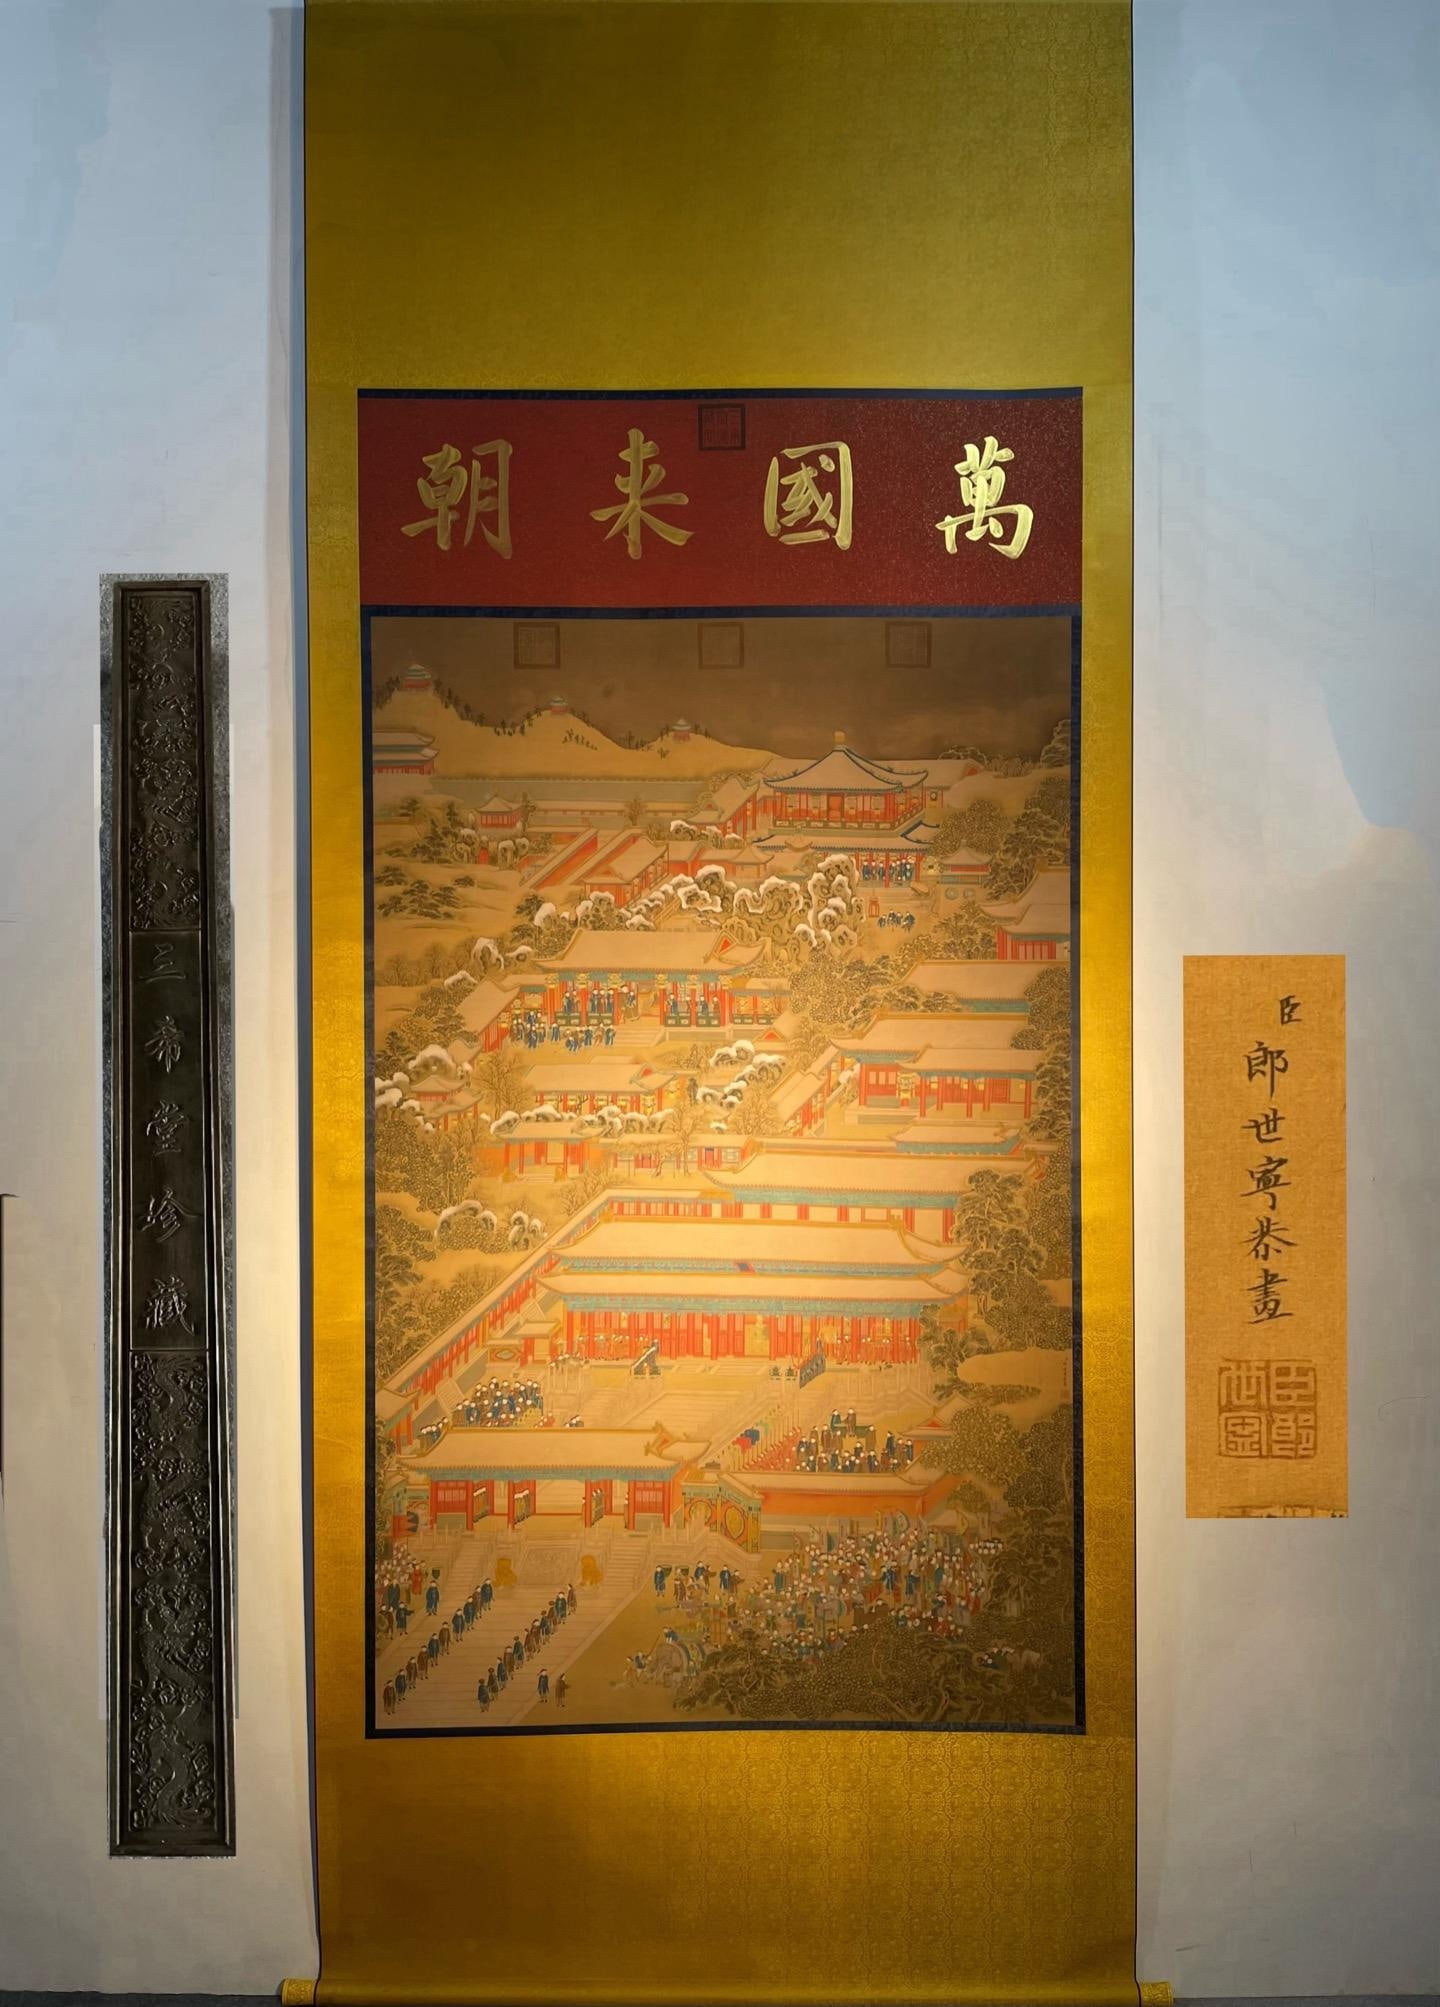 萬國来朝
三希堂珍藏
臣郎世寧恭畫
臣郎世寧